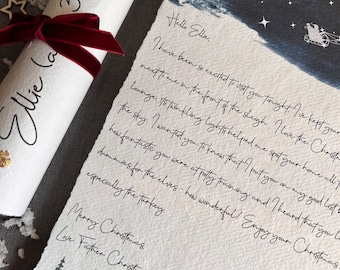 Ellie
Hello Ellie
I have been so excited to visit you tonight I've kept your
next to me on the front of the sleigh. I love the Christmas
lounge its twinkling lights helped me spot your home all
the sky. I wanted you to know that I put you on my good list
how fantastic you were at potty training and I heard that you
dummies for the elves - how wonderful! Enjoy your Christmas
especially the turkey
Merry Christmas
Love Father Christ